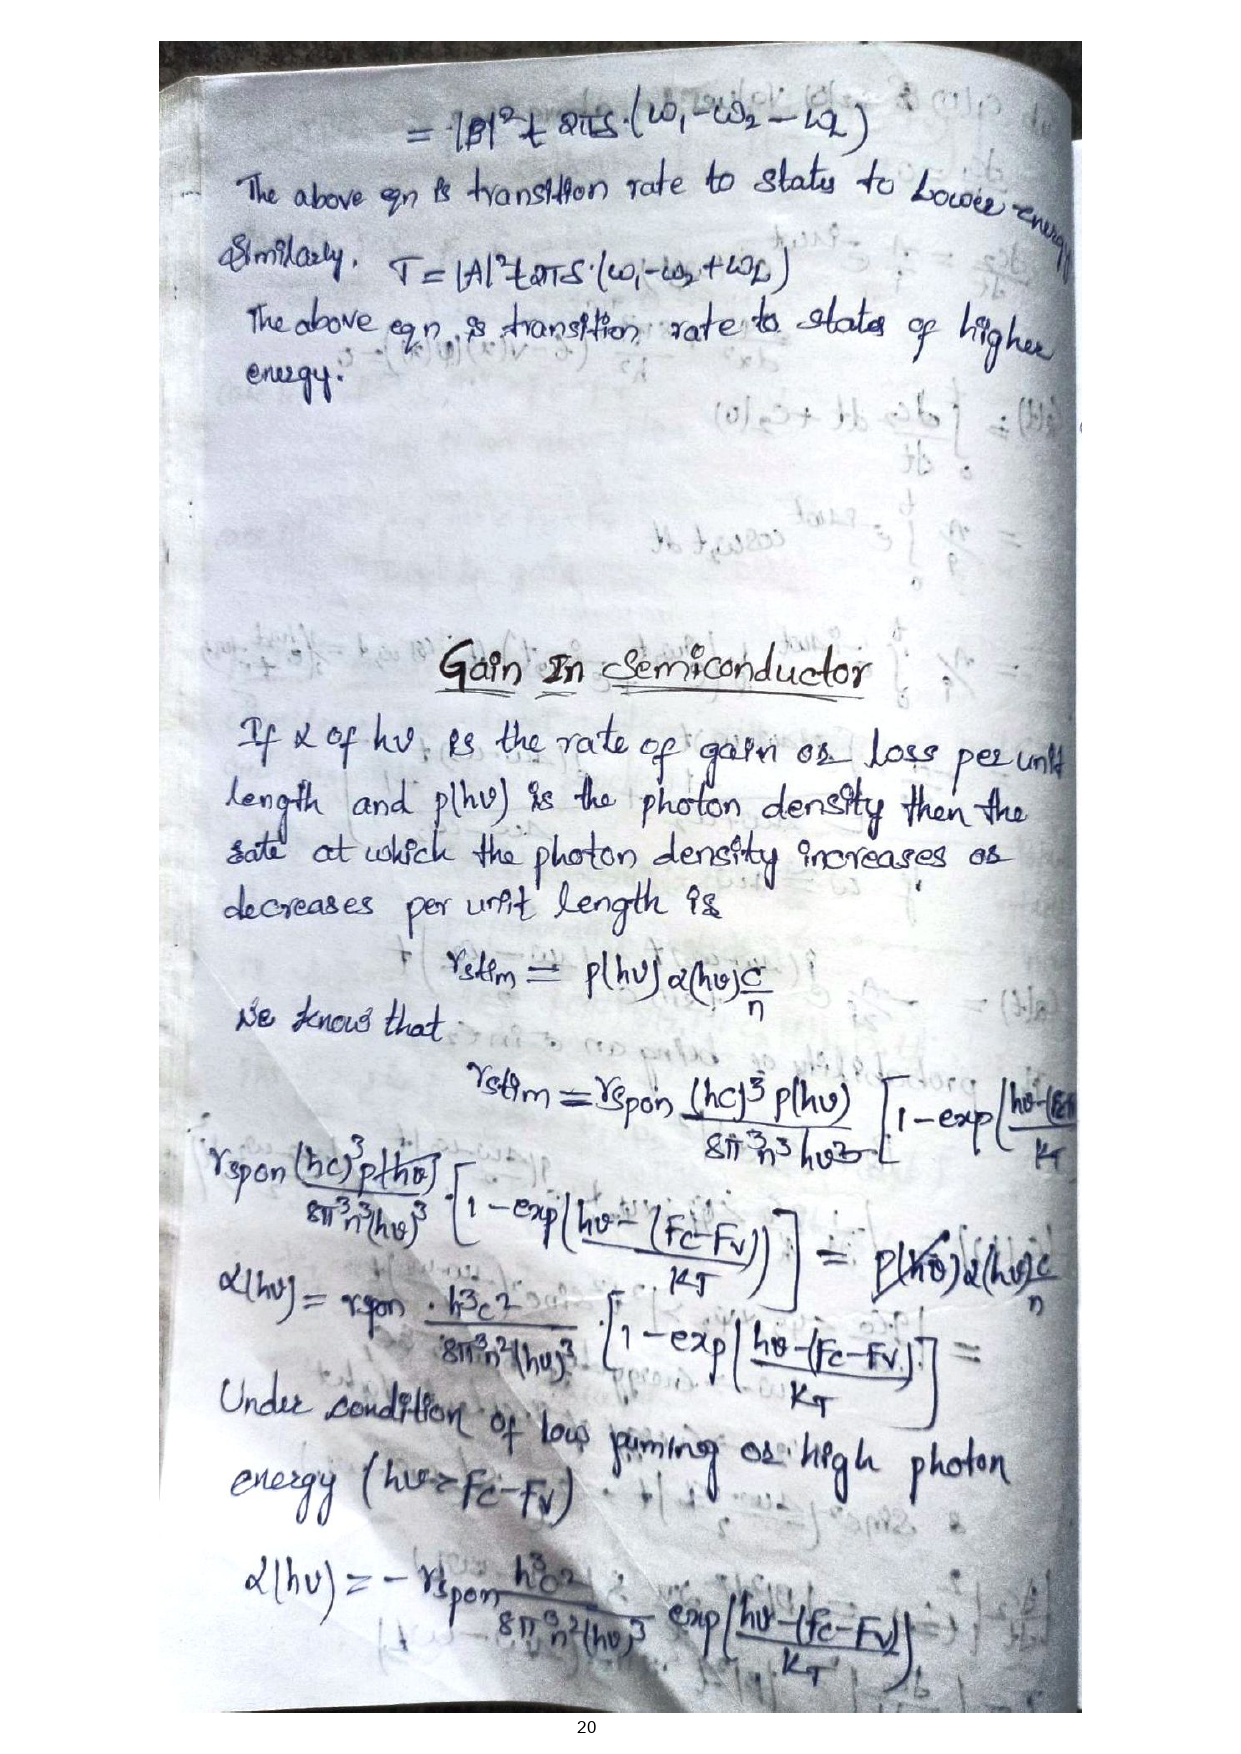 = |B|² t 2πS·(ω₁-ω₂-ω_L)
The above eqn is transition rate to states to Lower energy
Similarly. T = |A|² t 2πS·(ω₁-ω₂+ω_L)
The above eqn is transition rate to states of higher
energy.
Gain In Semiconductor
If α of hν is the rate of gain or loss per unit
length and p(hν) is the photon density then the
rate at which the photon density increases or
decreases per unit length is
rstim = p(hν) α(hν) c/n
We know that
rstim = rspon (hc)³ p(hν) / 8π³n³ hν³ [1-exp(hν-(
rspon (hc)³ p(hν) / 8π³n³(hν)³ · [1-exp(hν-(Fc-Fv) / KT)] = p(hν) α(hν) c/n
α(hν) = rspon · h³c² / 8π³n²(hν)³ · [1-exp(hν-(Fc-Fv) / KT)] =
Under condition of low puming or high photon
energy (hν > Fc-Fv)
α(hν) = - rspon h³c² / 8π³n²(hν)³ exp(hν-(Fc-Fv) / KT)
20